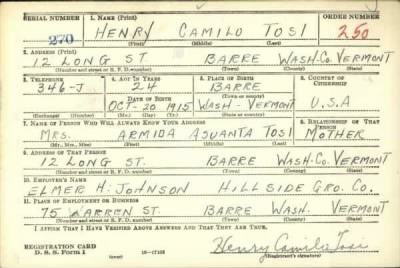 SERIAL NUMBER 1. NAME (Print) ORDER NUMBER
270 HENRY CAMILO TOSI 250
(First) (Middle) (Last)
2. ADDRESS (Print)
12 LONG ST BARRE WASH. CO. VERMONT
(Number and street or R. F. D. number) (Town) (County) (State)
3. TELEPHONE 4. AGE IN YEARS 5. PLACE OF BIRTH 6. COUNTRY OF CITIZENSHIP
346-J 24 BARRE
(Town or county)
DATE OF BIRTH
OCT-20 1915 WASH - VERMONT U.S.A
(Exchange) (Number) (Mo.) (Day) (Yr.) (State or country)
7. NAME OF PERSON WHO WILL ALWAYS KNOW YOUR ADDRESS 8. RELATIONSHIP OF THAT PERSON
MRS. ARMIDA ASUANTA TOSI MOTHER
(Mr., Mrs., Miss) (First) (Middle) (Last)
9. ADDRESS OF THAT PERSON
12 LONG ST. BARRE WASH. CO. VERMONT
(Number and street or R. F. D. number) (Town) (County) (State)
10. EMPLOYER'S NAME
ELMER H. JOHNSON HILLSIDE GRO. CO.
11. PLACE OF EMPLOYMENT OR BUSINESS
75 WARREN ST. BARRE WASH. VERMONT
(Number and street or R. F. D. number) (Town) (County) (State)
I AFFIRM THAT I HAVE VERIFIED ABOVE ANSWERS AND THAT THEY ARE TRUE.
REGISTRATION CARD
D. S. S. Form 1 (over) Henry Camilo Tosi
(Registrant's signature)